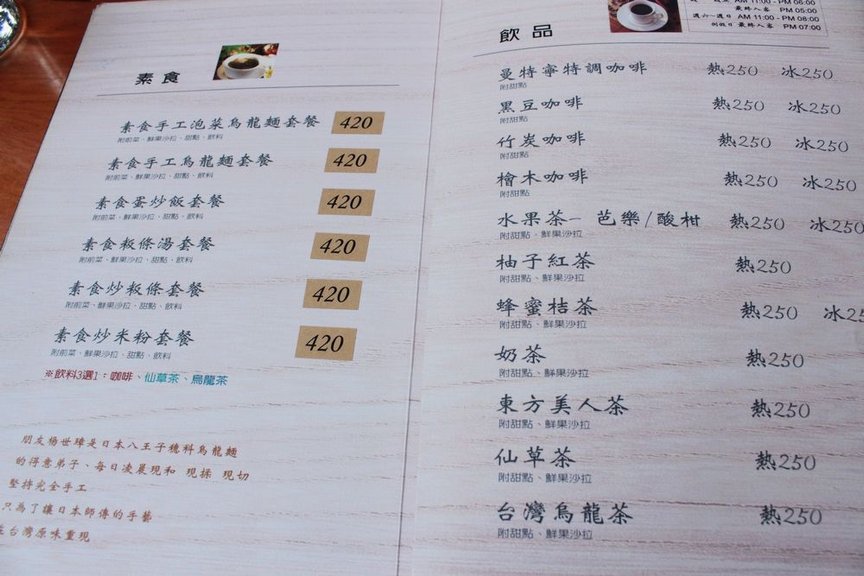 素食
素食手工泡菜烏龍麵套餐 420
附前菜、鮮果沙拉、甜點、飲料
素食手工烏龍麵套餐 420
附前菜、鮮果沙拉、甜點、飲料
素食蛋炒飯套餐 420
附前菜、鮮果沙拉、甜點、飲料
素食粄條湯套餐 420
附前菜、鮮果沙拉、甜點、飲料
素食炒粄條套餐 420
附前菜、鮮果沙拉、甜點、飲料
素食炒米粉套餐 420
附前菜、鮮果沙拉、甜點、飲料
※飲料3選1：咖啡、仙草茶、烏龍茶
朋友楊世瑋是日本八王子穗科烏龍麵
的得意弟子、每日凌晨現和 現揉 現切
堅持完全手工
只為了讓日本師傅的手藝
在台灣原味重現
AM 11:00 - PM 06:00
最終入客 PM 05:00
週六~週日 AM 11:00 - PM 08:00
例假日 最終入客 PM 07:00
飲品
曼特寧特調咖啡 熱250 冰250
附甜點
黑豆咖啡 熱250 冰250
附甜點
竹炭咖啡 熱250 冰250
附甜點
檜木咖啡 熱250 冰250
附甜點
水果茶— 芭樂/酸柑 熱250 冰250
附甜點、鮮果沙拉
柚子紅茶 熱250
附甜點、鮮果沙拉
蜂蜜桔茶 熱250 冰25
附甜點、鮮果沙拉
奶茶 熱250
附甜點、鮮果沙拉
東方美人茶 熱250
附甜點、鮮果沙拉
仙草茶 熱250
附甜點、鮮果沙拉
台灣烏龍茶 熱250
附甜點、鮮果沙拉